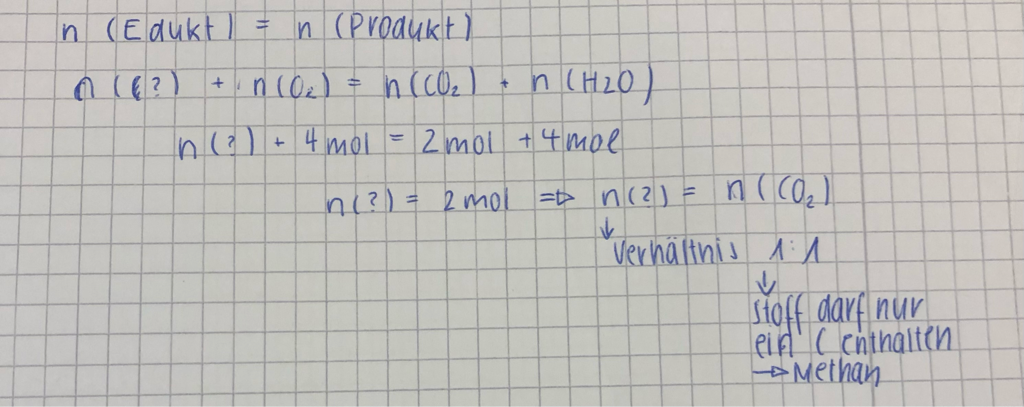 n (Edukt) = n (Produkt)
n (?) + n(O₂) = n(CO₂) + n(H2O)
n(?) + 4mol = 2mol + 4mol
n(?) = 2mol ⇒ n(?) = n(CO₂)
↓
Verhältnis 1:1
↓
Stoff darf nur
ein C enthalten
→ Methan